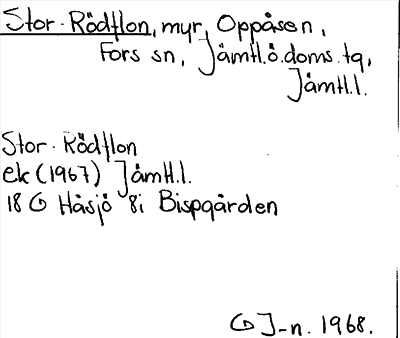 Stor-Rödflon, myr, Oppåsen,
Fors sn, Jämtl.ö.doms.tg,
Jämtl.l.
Stor-Rödflon
ek (1967) Jämtl.l.
18 G Håsjö 8i Bispgården
G J-n. 1968.